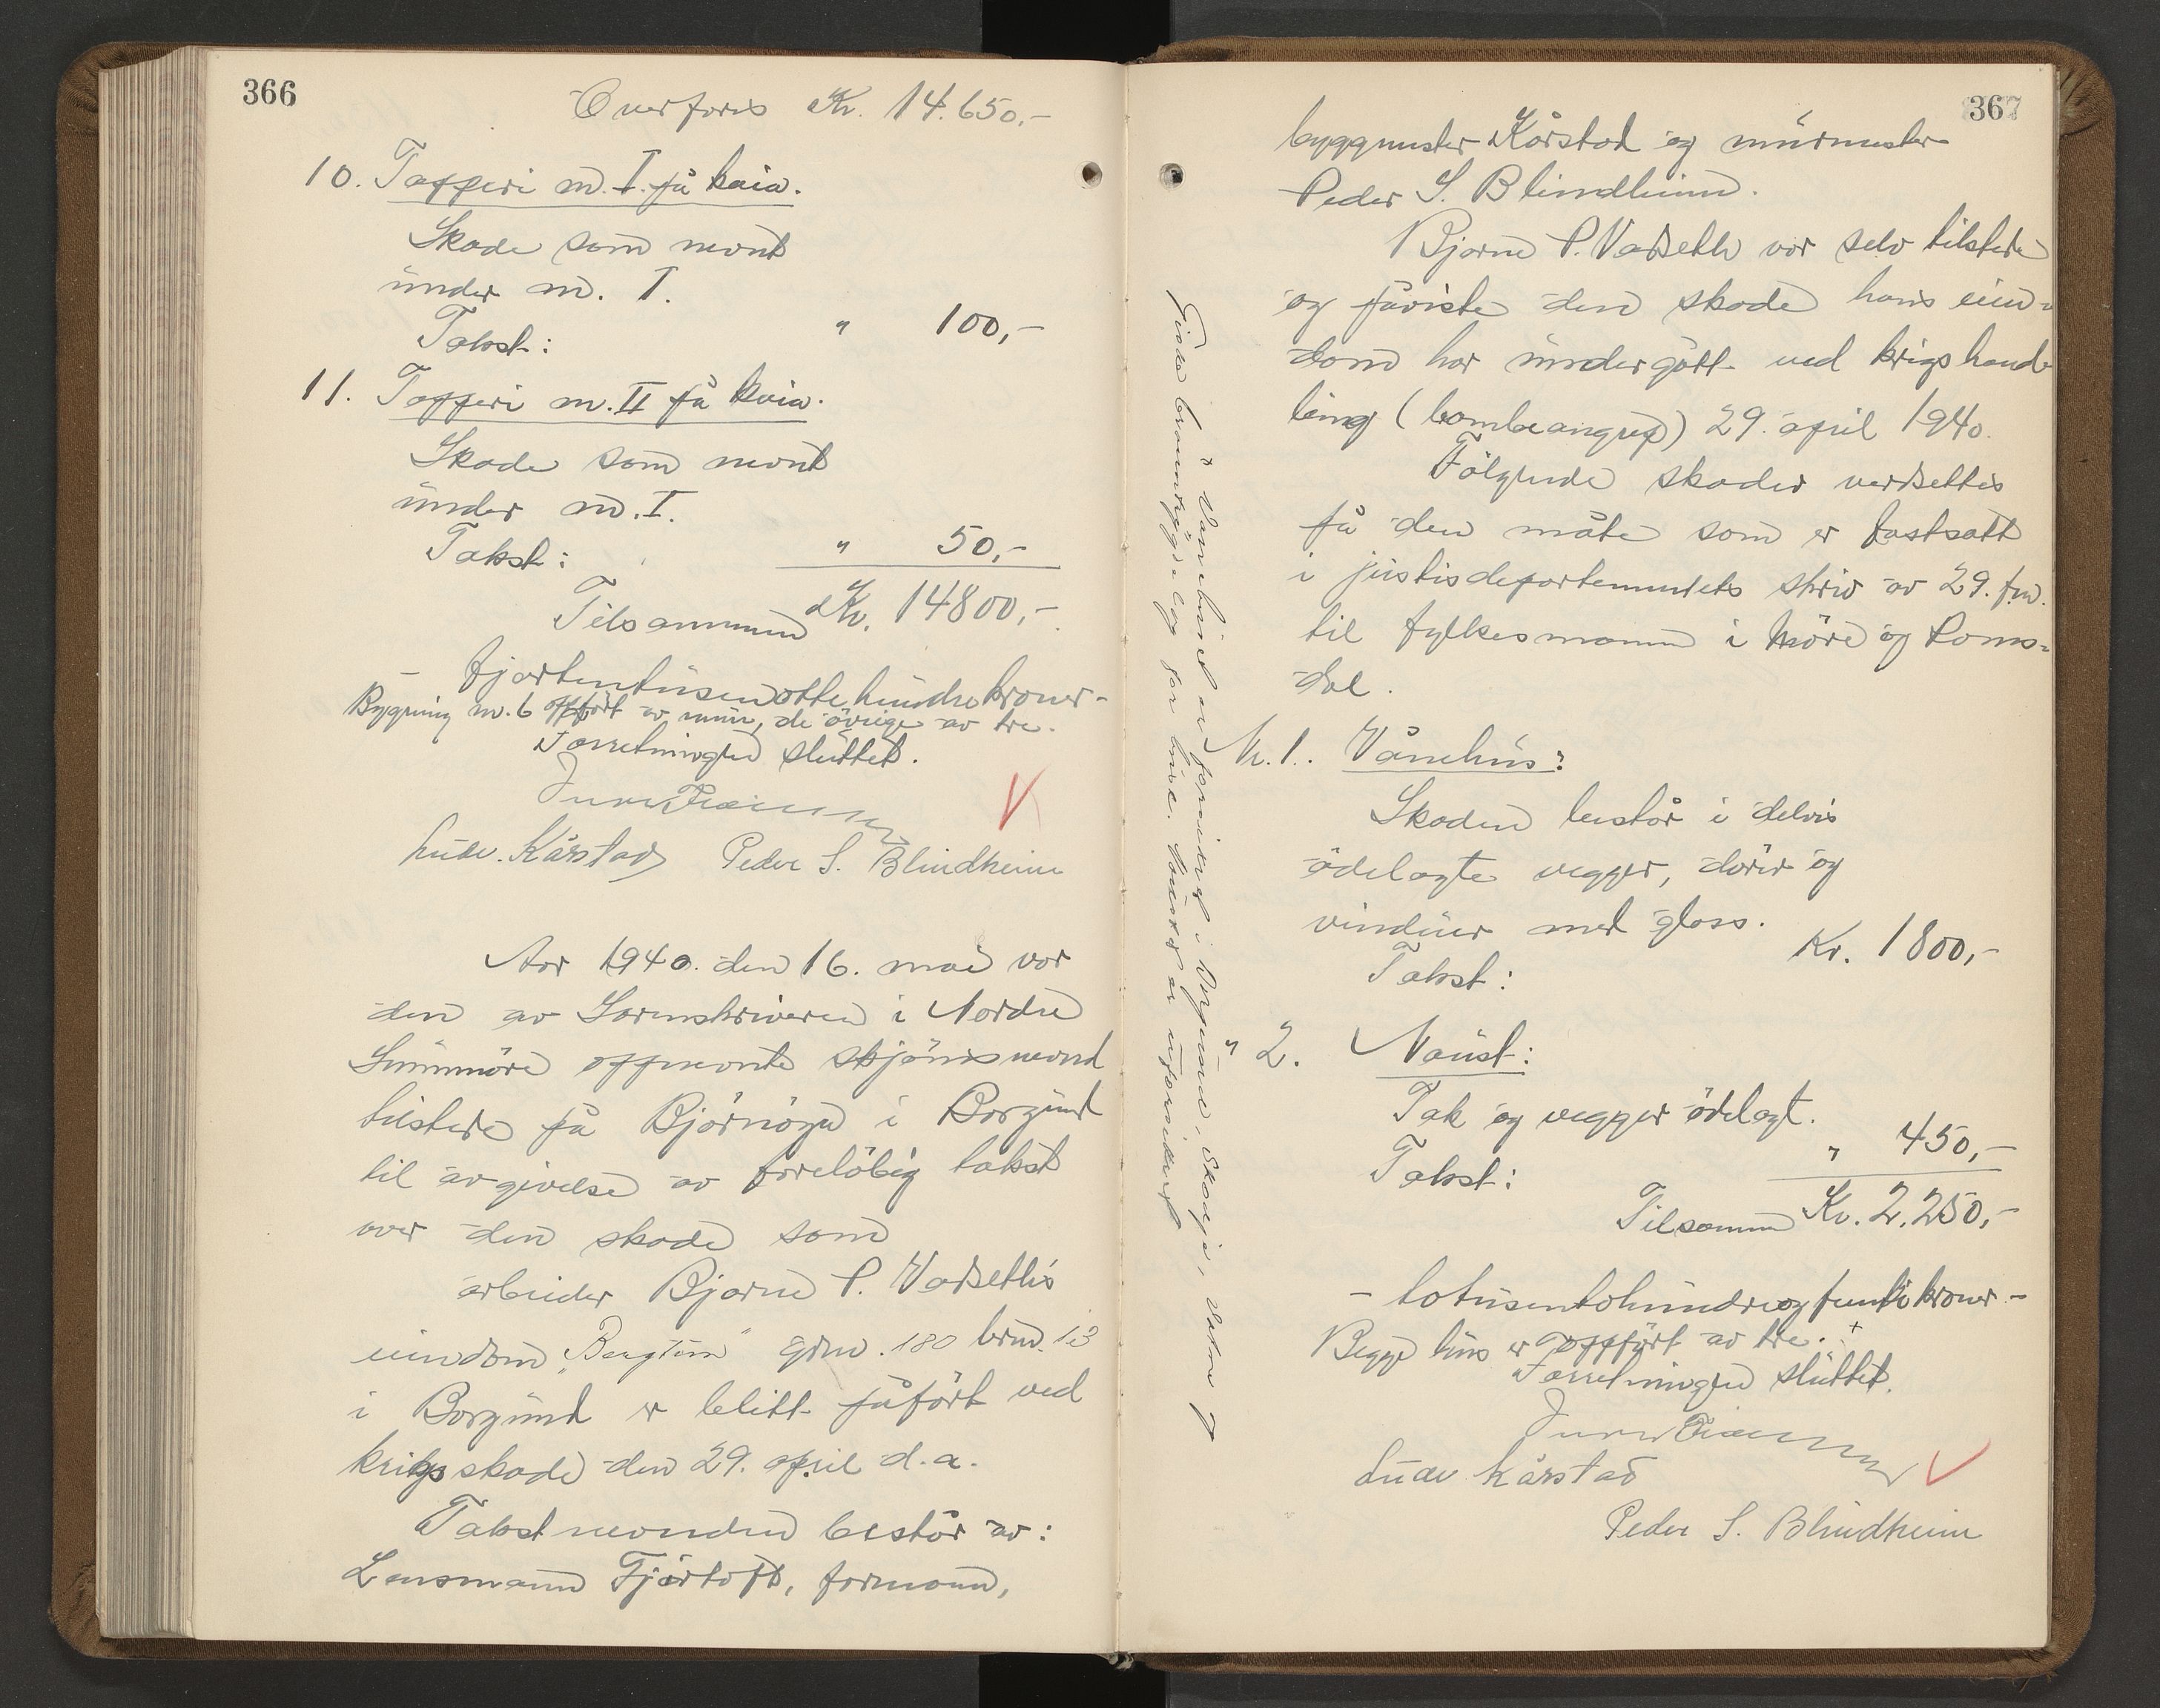 366
Overføres Kr. 14.650.-
10. Tapperi nr. I på kaia.
Skade som nevnt
under nr. I.
Takst: " 100,-
11. Tapperi nr. II på kaia.
Skade som nevnt
under nr. I.
Takst: " 50,-
Tilsammen Kr. 14800,-
- fjortentusenottehundrekroner -
Bygning nr. 6 oppført av mur, de øvrige av tre.
Forretningen sluttet.
Ludv. Kårstad Peder S. Blindheim
Aar 1940. den 16. mai var
den av Sorenskriveren i Nordre
Sunnmöre oppnevnte skjönsnevnd
tilstede på Björnöya i Borgund
til avgivelse av foreløbig takst
over den skade som
arbeider Bjarne P. Vadseths
eiendom "Bergtun" grnr. 180 brnr. 13
i Borgund er blitt påført ved
krigsskade den 29. april d.a.
Takstnevnden består av:
Lensmann Fjørtoft, formann,
367
byggmester Kårstad og murmester
Peder S. Blindheim.
Bjarne P. Vadseth var selv tilstede
og påviste den skade hans eien-
dom har undergått ved krigshand-
ling (bombeangrep) 29. april 1940.
Følgende skader verdsettes
på den måte som er fastsatt
i justisdepartementets skriv av 29. f.m.
til fylkesmannen i Möre og Roms-
dal.
Nr. 1. Vånehus:
Skaden består i delvis
ödelagte vegger, dører og
vinduer med glass.
Takst: Kr. 1800,-
" 2. Naust:
Tak og vegger ödelagt.
Takst: " 450,-
Tilsammen Kr. 2.250,-
- totusentohundreogfemtikroner -
Begge hus er oppført av tre. x
Forretningen sluttet.
Ludv Kårstad
Peder S. Blindheim
x Vånehuset er forsikret i Borgund, Skorje,
for huse. Naustet er uforsikret